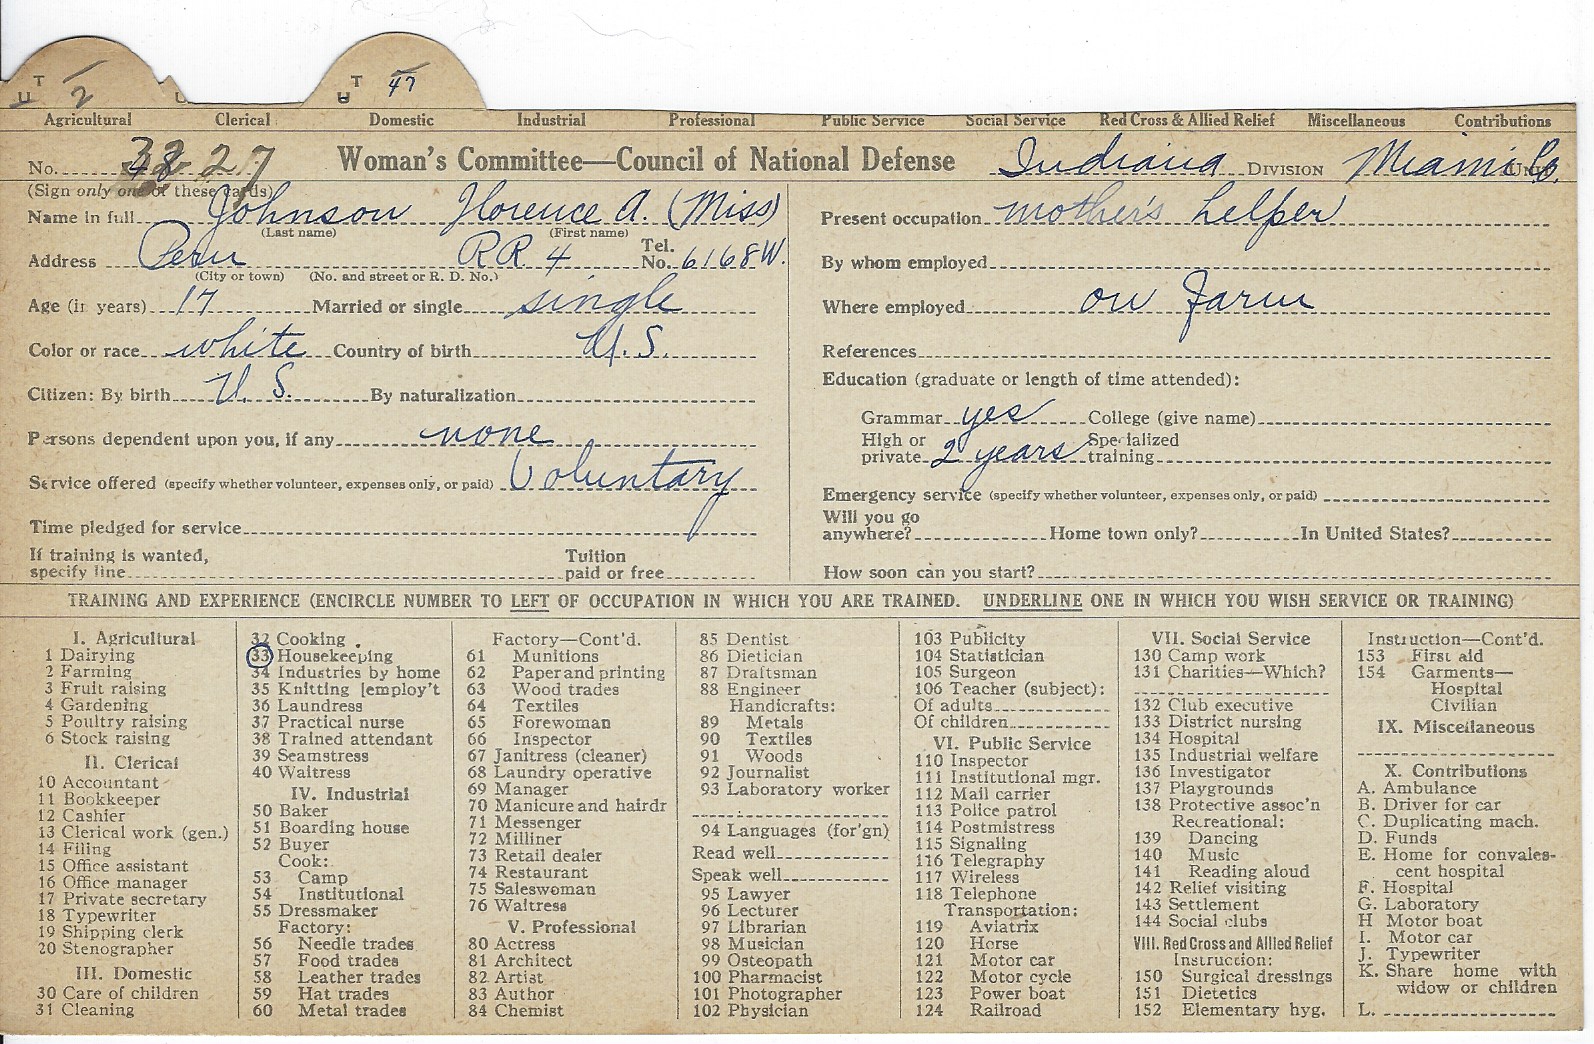 T 2 U T 47
Agricultural Clerical Domestic Industrial Professional Public Service Social Service Red Cross & Allied Relief Miscellaneous Contributions
No. 27 Woman's Committee—Council of National Defense Indiana DIVISION Miami Co. UNIT
(Sign only one of these cards)
Name in full Johnson Florence A. (Miss)
(Last name) (First name)
Address Peru RR 4 Tel. No. 6168W.
(City or town) (No. and street or R. D. No.)
Age (in years) 17 Married or single single
Color or race white Country of birth U.S.
Citizen: By birth U.S. By naturalization
Persons dependent upon you, if any none
Service offered (specify whether volunteer, expenses only, or paid) Voluntary
Time pledged for service
If training is wanted, specify line Tuition paid or free
Present occupation mother's helper
By whom employed
Where employed on farm
References
Education (graduate or length of time attended):
Grammar yes College (give name)
High or private 2 years Specialized training
Emergency service (specify whether volunteer, expenses only, or paid)
Will you go anywhere? Home town only? In United States?
How soon can you start?
TRAINING AND EXPERIENCE (ENCIRCLE NUMBER TO LEFT OF OCCUPATION IN WHICH YOU ARE TRAINED. UNDERLINE ONE IN WHICH YOU WISH SERVICE OR TRAINING)
I. Agricultural
1 Dairying
2 Farming
3 Fruit raising
4 Gardening
5 Poultry raising
6 Stock raising
II. Clerical
10 Accountant
11 Bookkeeper
12 Cashier
13 Clerical work (gen.)
14 Filing
15 Office assistant
16 Office manager
17 Private secretary
18 Typewriter
19 Shipping clerk
20 Stenographer
III. Domestic
30 Care of children
31 Cleaning
32 Cooking
33 Housekeeping
34 Industries by home
35 Knitting [employ't
36 Laundress
37 Practical nurse
38 Trained attendant
39 Seamstress
40 Waitress
IV. Industrial
50 Baker
51 Boarding house
52 Buyer
Cook:
53 Camp
54 Institutional
55 Dressmaker
Factory:
56 Needle trades
57 Food trades
58 Leather trades
59 Hat trades
60 Metal trades
Factory—Cont'd.
61 Munitions
62 Paper and printing
63 Wood trades
64 Textiles
65 Forewoman
66 Inspector
67 Janitress (cleaner)
68 Laundry operative
69 Manager
70 Manicure and hairdr
71 Messenger
72 Milliner
73 Retail dealer
74 Restaurant
75 Saleswoman
76 Waitress
V. Professional
80 Actress
81 Architect
82 Artist
83 Author
84 Chemist
85 Dentist
86 Dietician
87 Draftsman
88 Engineer
Handicrafts:
89 Metals
90 Textiles
91 Woods
92 Journalist
93 Laboratory worker
94 Languages (for'gn)
Read well
Speak well
95 Lawyer
96 Lecturer
97 Librarian
98 Musician
99 Osteopath
100 Pharmacist
101 Photographer
102 Physician
103 Publicity
104 Statistician
105 Surgeon
106 Teacher (subject):
Of adults
Of children
VI. Public Service
110 Inspector
111 Institutional mgr.
112 Mail carrier
113 Police patrol
114 Postmistress
115 Signaling
116 Telegraphy
117 Wireless
118 Telephone
Transportation:
119 Aviatrix
120 Horse
121 Motor car
122 Motor cycle
123 Power boat
124 Railroad
VII. Social Service
130 Camp work
131 Charities—Which?
132 Club executive
133 District nursing
134 Hospital
135 Industrial welfare
136 Investigator
137 Playgrounds
138 Protective assoc'n
Recreational:
139 Dancing
140 Music
141 Reading aloud
142 Relief visiting
143 Settlement
144 Social clubs
VIII. Red Cross and Allied Relief
Instruction:
150 Surgical dressings
151 Dietetics
152 Elementary hyg.
Instruction—Cont'd.
153 First aid
154 Garments—
Hospital
Civilian
IX. Miscellaneous
X. Contributions
A. Ambulance
B. Driver for car
C. Duplicating mach.
D. Funds
E. Home for convales-
cent hospital
F. Hospital
G. Laboratory
H Motor boat
I. Motor car
J. Typewriter
K. Share home with
widow or children
L.